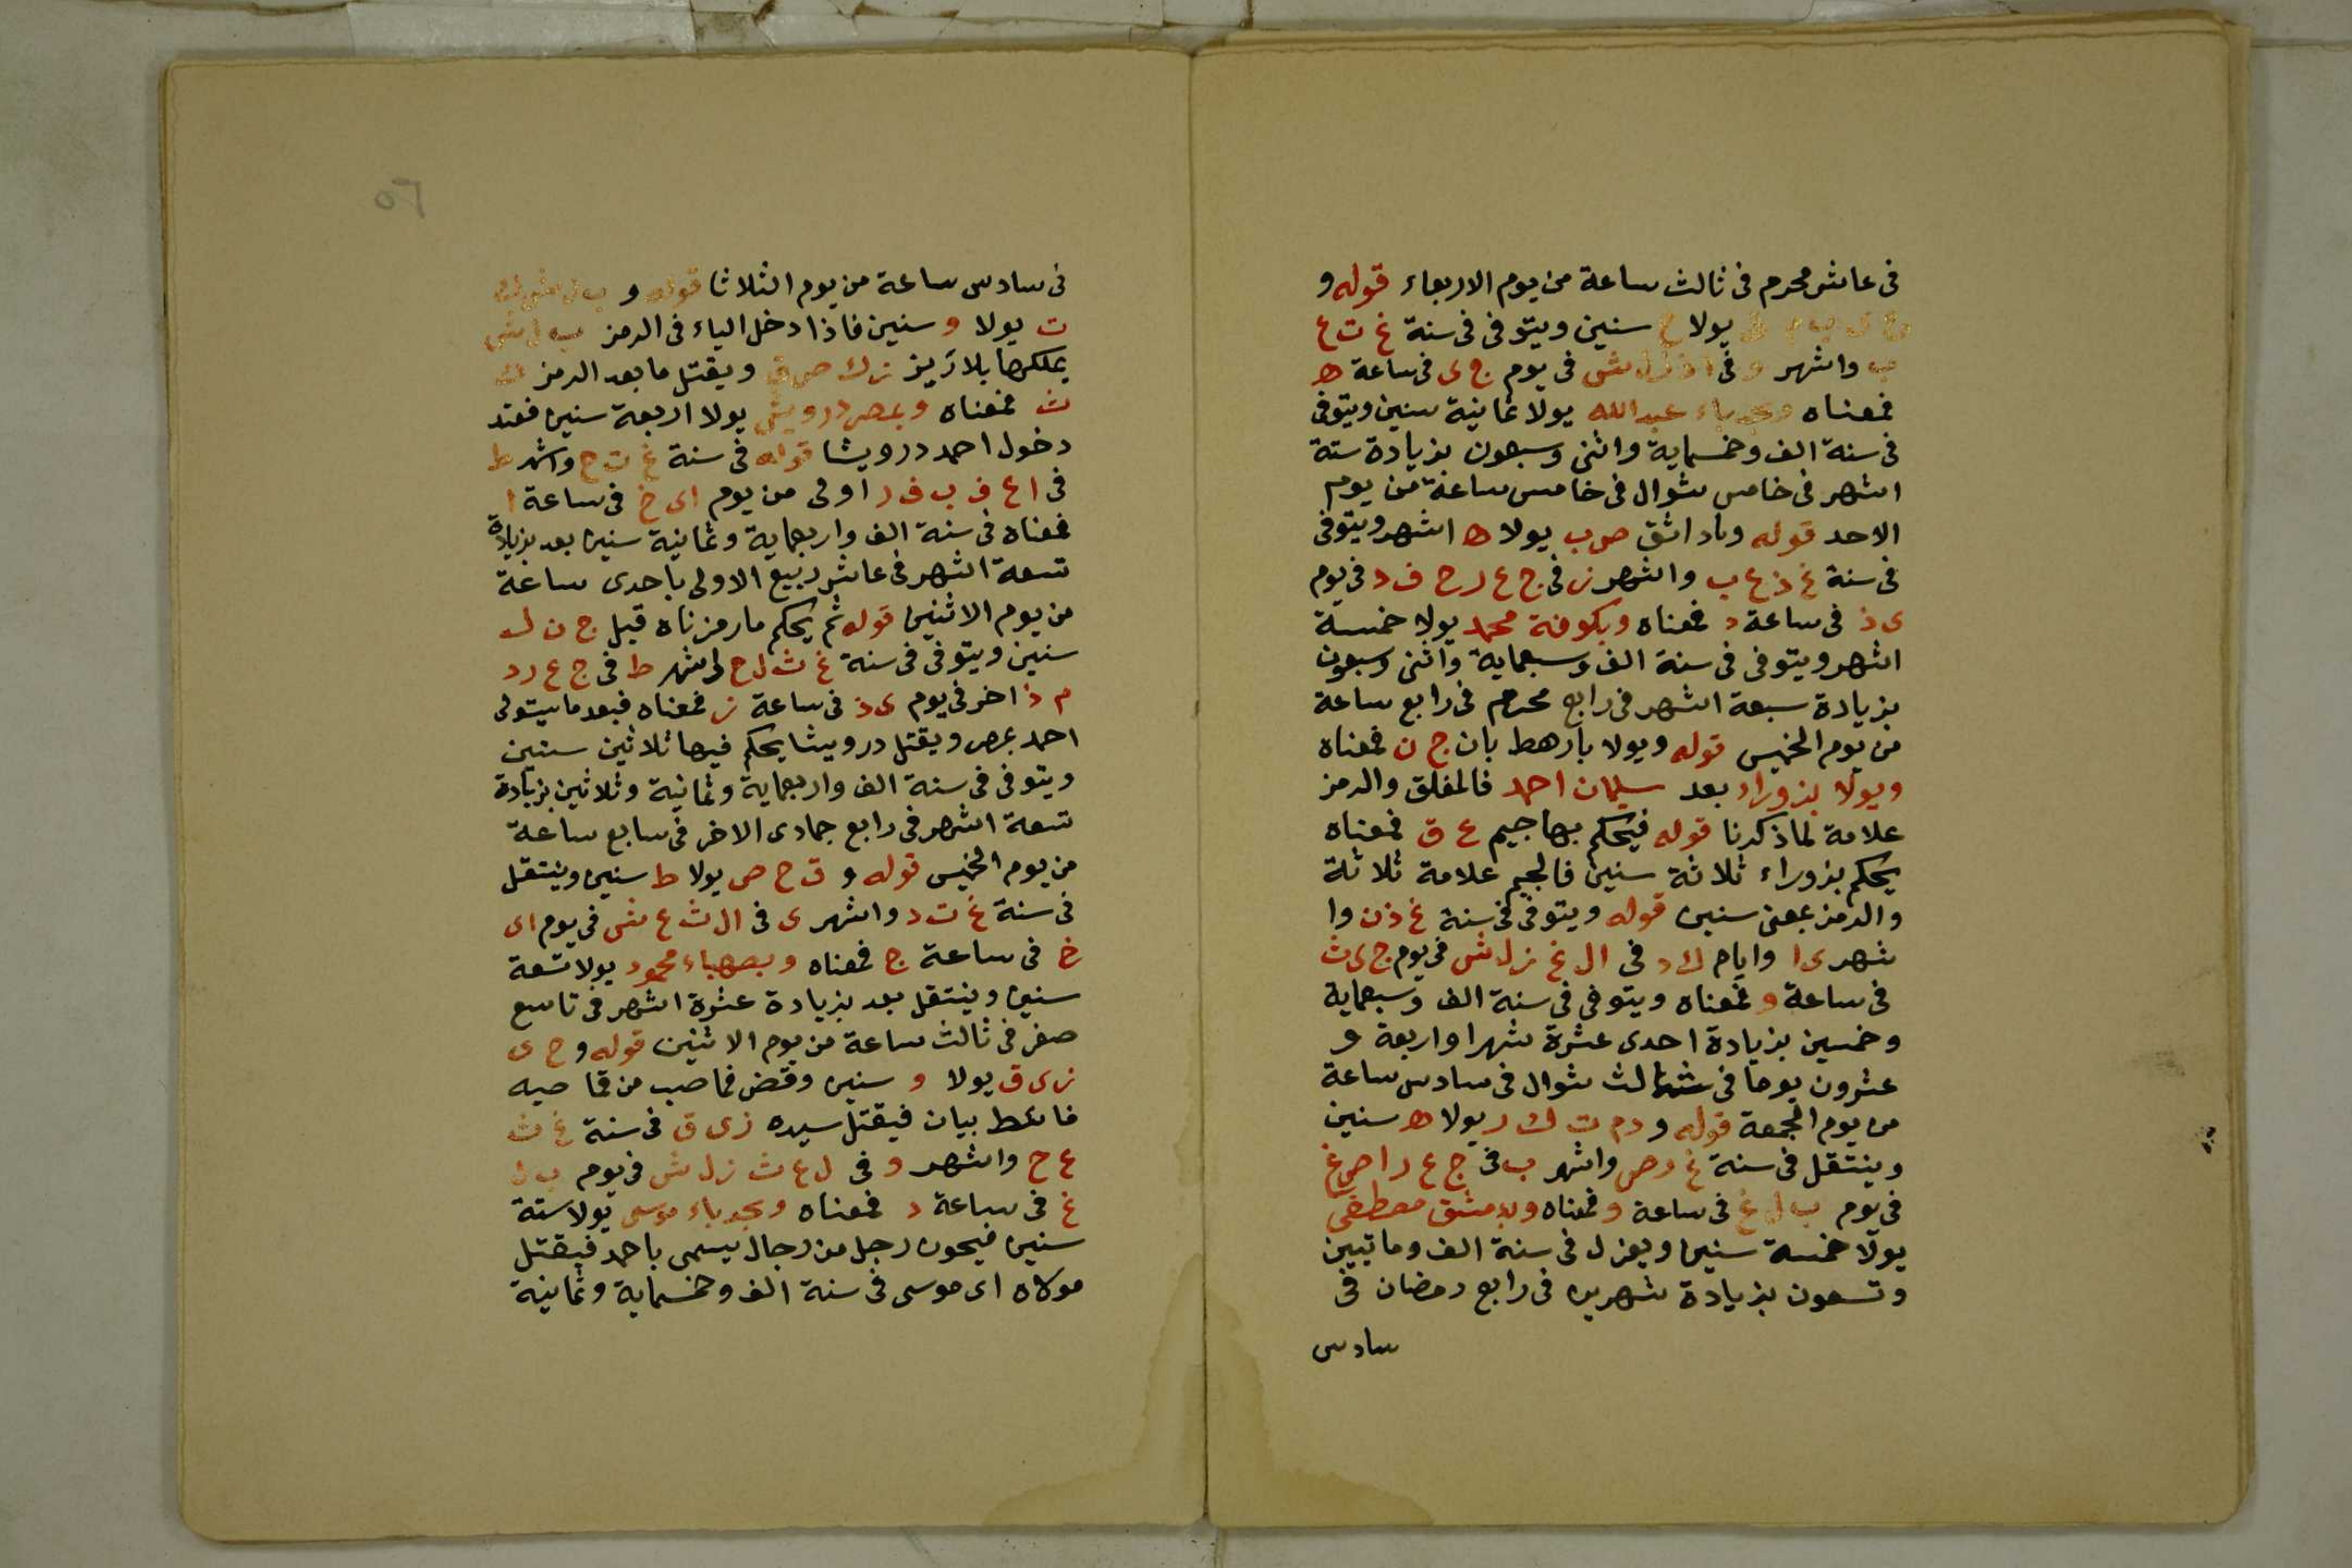 فى عاشر محرم فى ثالث ساعة من يوم الاربعاء قوله و
يولا ح سنين ويتوفى فى سنة غ ث ع
ب واشهر و فى ا ذ ز ل ش فى يوم ج ى فى ساعة ه
فمعناه وبجدباء عبدالله يولا ثمانية سنين ويتوفى
فى سنة الف وخمسماية واثنى وسبعون بزيادة ستة
اشهر فى خامس شوال فى خامس ساعة من يوم
الاحد قوله وباد اثق ص ب يولا ه اشهر ويتوفى
فى سنة غ ذ ع ب واشهر ز فى ج ع ر ح ف د فى يوم
ى ذ فى ساعة د فمعناه وبكوفة محمد يولا خمسة
اشهر ويتوفى فى سنة الف وسبعماية واثنى وسبعون
بزيادة سبعة اشهر فى رابع محرم فى رابع ساعة
من يوم الخميس قوله ويولا بارهط بان ج ن فمعناه
ويولا بزوراد بعد سليمان احمد فالمغلق والرمز
علامة لماذكرنا قوله فيحكم بها جيم ع ق فمعناه
يحكم بزوراء ثلاثة سنين فالجيم علامة ثلاثة
والرمز بمعنى سنين قوله ويتوفى فى سنة غ ذ ن وا
شهر ى ا وايام ك د فى ال غ ز ل ش فى يوم ج ى ث
فى ساعة و فمعناه ويتوفى فى سنة الف وسبعماية
وخمسين بزيادة احدى عشرة شهرا واربعة و
عشرون يوما فى ثالث شوال فى سادس ساعة
من يوم الجمعة قوله و د م ت ك ر يولا ه سنين
وينتقل فى سنة غ ر ص واشهر ب فى ج ع ر ا ص غ
فى يوم ب ل غ فى ساعة و فمعناه وبدمشق مصطفى
يولا خمسة سنين ويعزل فى سنة الف وماتيين
وتسعون بزيادة شهرين فى رابع رمضان فى
سادس
فى سادس ساعة من يوم الثلاثا قوله و
ث يولا و سنين فاذا دخل الياء فى الرمز ب ل ش
يملكها بلا زيز ز ك ص ق ويقتل ما بعد الرمز ك
ث فمعناه وبمصر درويش يولا اربعة سنين فعند
دخول احمد درويشا قوله فى سنة غ ت ح واشهر ط
فى ا ع ف ب ف ر اولى من يوم اى خ فى ساعة ا
فمعناه فى سنة الف واربعماية وثمانية سنين بعد بزيادة
تسعة اشهر فى عاشر ربيع الاولى باحدى ساعة
من يوم الاثنين قوله ثم يحكم مارمزناه قبل ج ن ل
سنين ويتوفى فى سنة غ ث ل ح اشهر ط فى ج ع ر د
م ذ اخر فى يوم ى ذ فى ساعة ز فمعناه فبعد ماسيتولى
احمد بمصر ويقتل درويشا يحكم فيها ثلاثين سنين
ويتوفى فى سنة الف واربعماية وثمانية وثلاثين بزيادة
تسعة اشهر فى رابع جمادى الاخر فى سابع ساعة
من يوم الخميس قوله و ق ح ص يولا ط سنين وينتقل
فى سنة غ ت د واشهر ى فى ال ث ع ش فى يوم اى
خ فى ساعة ج فمعناه وبصهباء محمود يولا تسعة
سنين وينتقل بعد بزيادة عشرة اشهر فى تاسع
صفر فى ثالث ساعة من يوم الاثنين قوله و ح ى
ز ى ق يولا و سنين وقض فماصب من قما صيه
فائط بيان فيقتل سيده ز ى ق فى سنة غ ث
ع ح واشهر و فى ل ع ث ز ل ش فى يوم ب ل
غ فى ساعة د فمعناه وبجدباء موسى يولا ستة
سنين فيحون رجل من رجال يسمى باحمد فيقتل
مولاه اى موسى فى سنة الف وخمسماية وثمانية